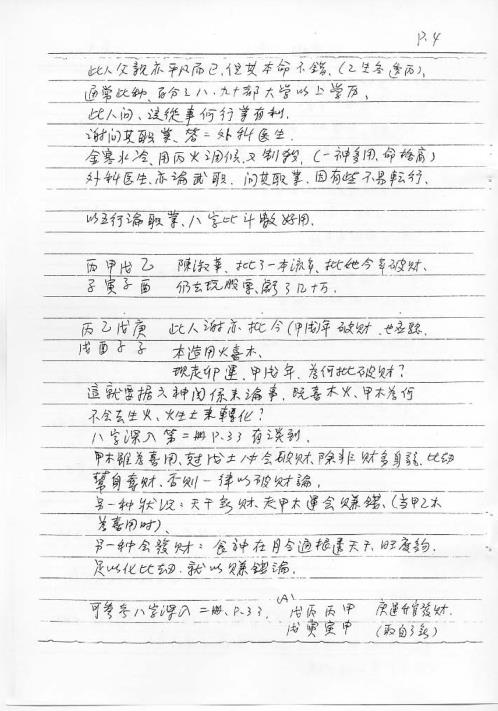 P.4
此人父親亦平凡而已，但其本命不錯，(乙生冬逢丙)，
通常此种，百分之八、九十都大学以上学历，
此人问，該從事何行業有利，
謝问其职業，答＝外科医生，
金寒水冷，用丙火调候，又制殺，(一神多用，命格高)
外科医生，亦論武职，问其职業，因有些不易転行，
以五行論职業，八字比斗數好用，
丙甲戊乙　陳淑華，批了一本流年，批她今年破财，
子寅子酉　仍去玩股票，虧了几十万，
丙乙戊庚　此人謝亦批今(甲戌)年破财，也应验，
戌酉子子　本造用火喜木，
现走卯運，甲戌年，为何批破财？
這就要据六神関係来論事，既喜木火，甲木为何
不会去生火，火生土来轉化？
八字深入第二冊P.33有談到，
甲木雖为喜用，尅戊土亦会破财，除非财多身弱，比劫
幫身奪财，否則一律以破财論，
另一种狀况：天干無财，走甲木運会赚錢，(当甲乙木
为喜用时)，
另一种会發财：食神在月令通根透天干，旺度夠，
足以化比劫，就以赚錢論，
可参考八字深入二冊，P.33，(A) 戊丙丙甲　庚運升官發财，
戌寅寅甲　(取自了無)